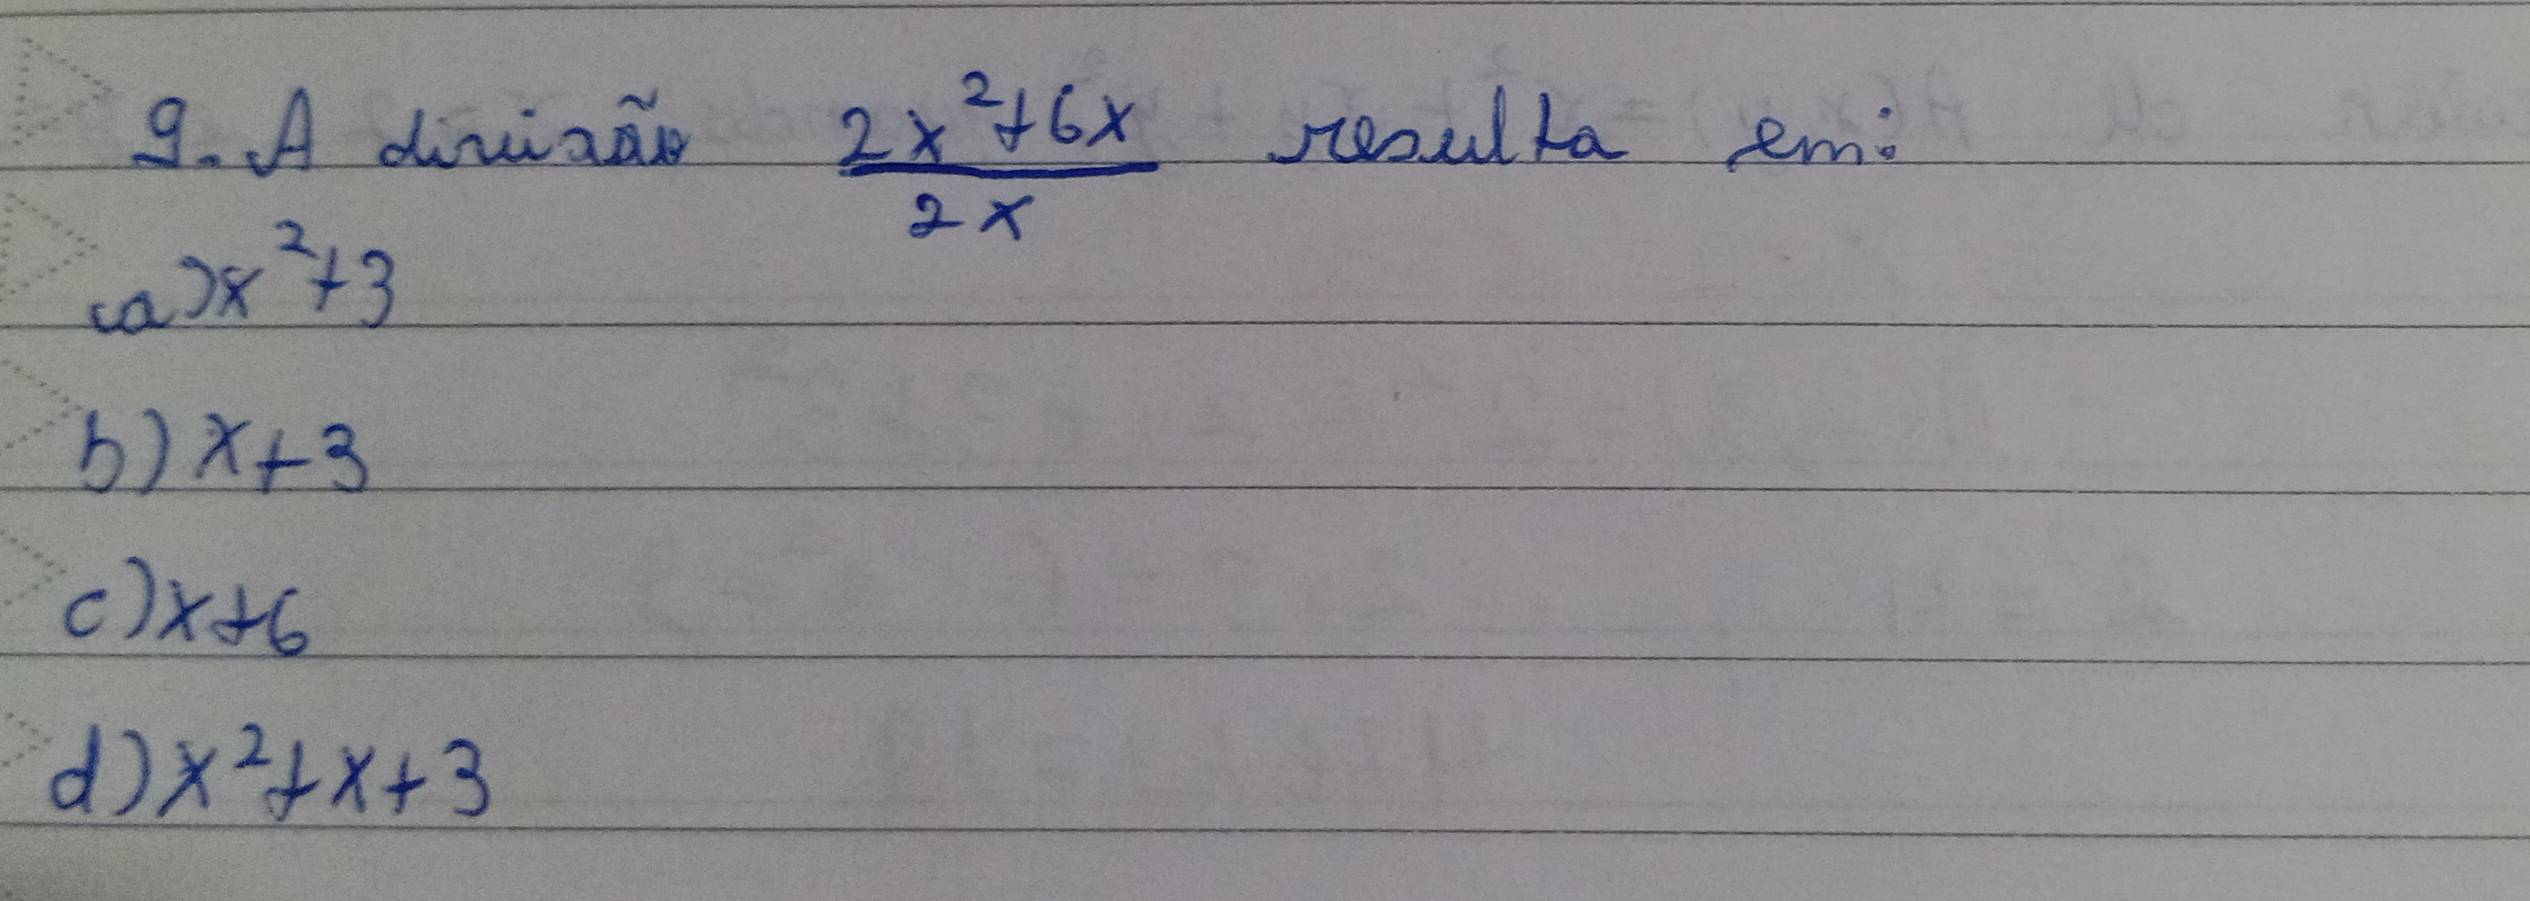 9. A divisão 2x²+6x/2x resulta em:
a) x²+3
b) x+3
c) x+6
d) x²+x+3